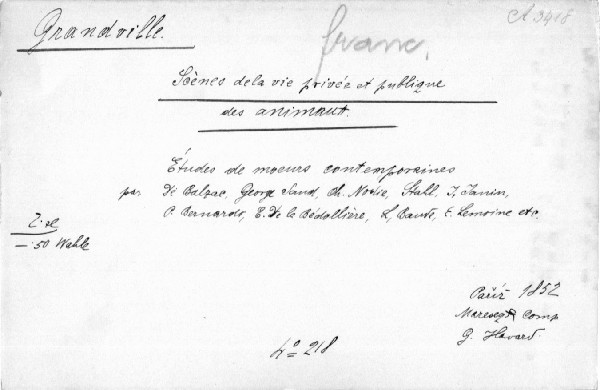 Grandville.
franc.
A 3418
Scènes de la vie privée et publique
des animaux.
Études de moeurs contemporaines
par De Balzac, George Sand, Ch. Nodie, Stall, J. Janin,
P. Bernards, E. De la Bédollière, L. Baude, E. Lemoine etc.
— 50 Wahle
Paříž 1852
Maresq Comp
G. Havard.
No 218